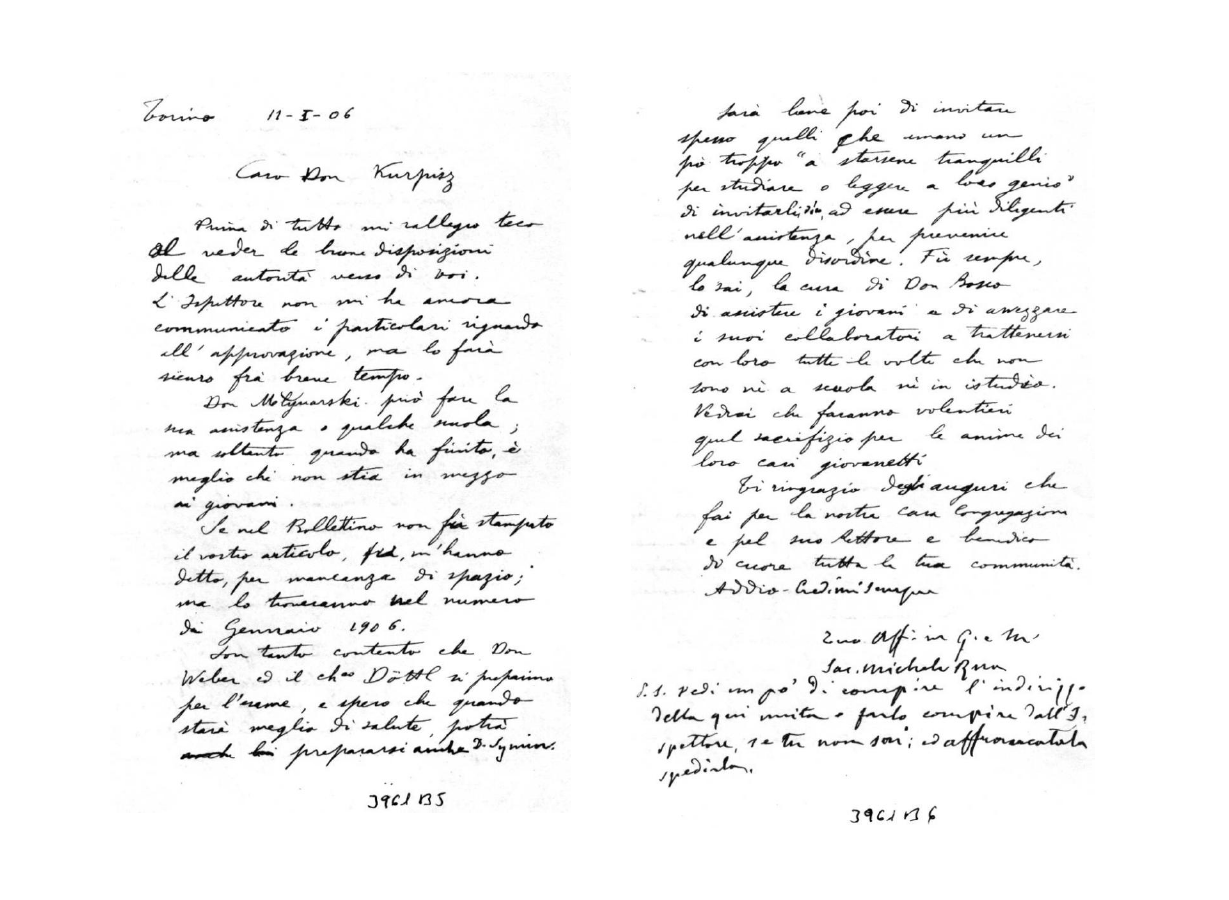 Torino 11-I-06
Caro Don Kurpisz
Prima di tutto mi rallegro teco
al veder le buone disposizioni
delle autorità verso di voi.
L'Ispettore non mi ha ancora
communicato i particolari riguardo
all'approvazione, ma lo farà
sicuro fra breve tempo.
Don Młynarski può fare la
sua assistenza o qualche scuola;
ma soltanto quando ha finito, è
meglio che non stia in mezzo
ai giovani.
Se nel Bollettino non fu stampato
il vostro articolo, fu, m'hanno
detto, per mancanza di spazio;
ma lo troveranno nel numero
di Gennaio 1906.
Son tanto contento che Don
Weber ed il ch.co Döttl si preparino
per l'esame, e spero che quando
starà meglio di salute, potrà
prepararsi anche D. Symior.
3961 B5
Sarà bene poi di invitare
spesso quelli che amano un
pò troppo "a starsene tranquilli
per studiare o leggere a loro genio"
di invitarli, ad essere più diligenti
nell'assistenza, per prevenire
qualunque disordine. Fu sempre,
lo sai, la cura di Don Bosco
di assistere i giovani e di avvezzare
i suoi collaboratori a trattenersi
con loro tutte le volte che non
sono nè a scuola nè in istudio.
Vedrai che faranno volentieri
quel sacrifizio per le anime dei
loro cari giovanetti
Ti ringrazio degli auguri che
fai per la nostra cara Congregazione
e pel suo Rettore e benedico
di cuore tutta la tua communità.
Addio - Credimi sempre
Tuo Aff.mo in G. e M.
Sac. Michele Rua
P.S. Vedi un pò di compire l'indirizzo
della qui unita o farlo compire dall'I-
spettore, se tu non sai; ed affrancatala
spedirla.
3961 B6